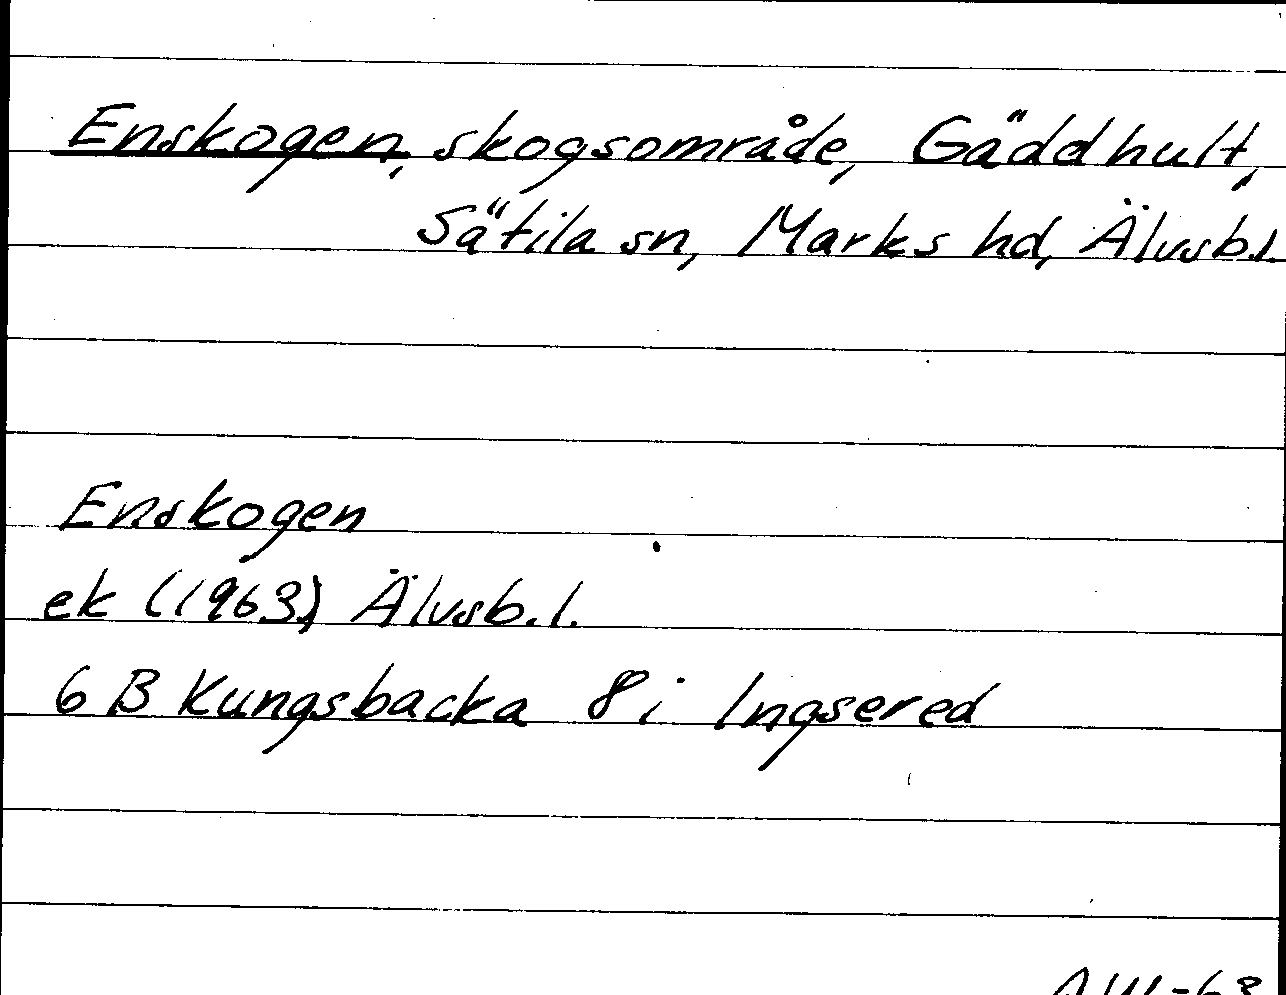 Enskogen, skogsområde, Gäddhult,
Sätila sn, Marks hd, Älvsb.l.
Enskogen
ek (1963) Älvsb.l.
6 B Kungsbacka 8 i Ingsered